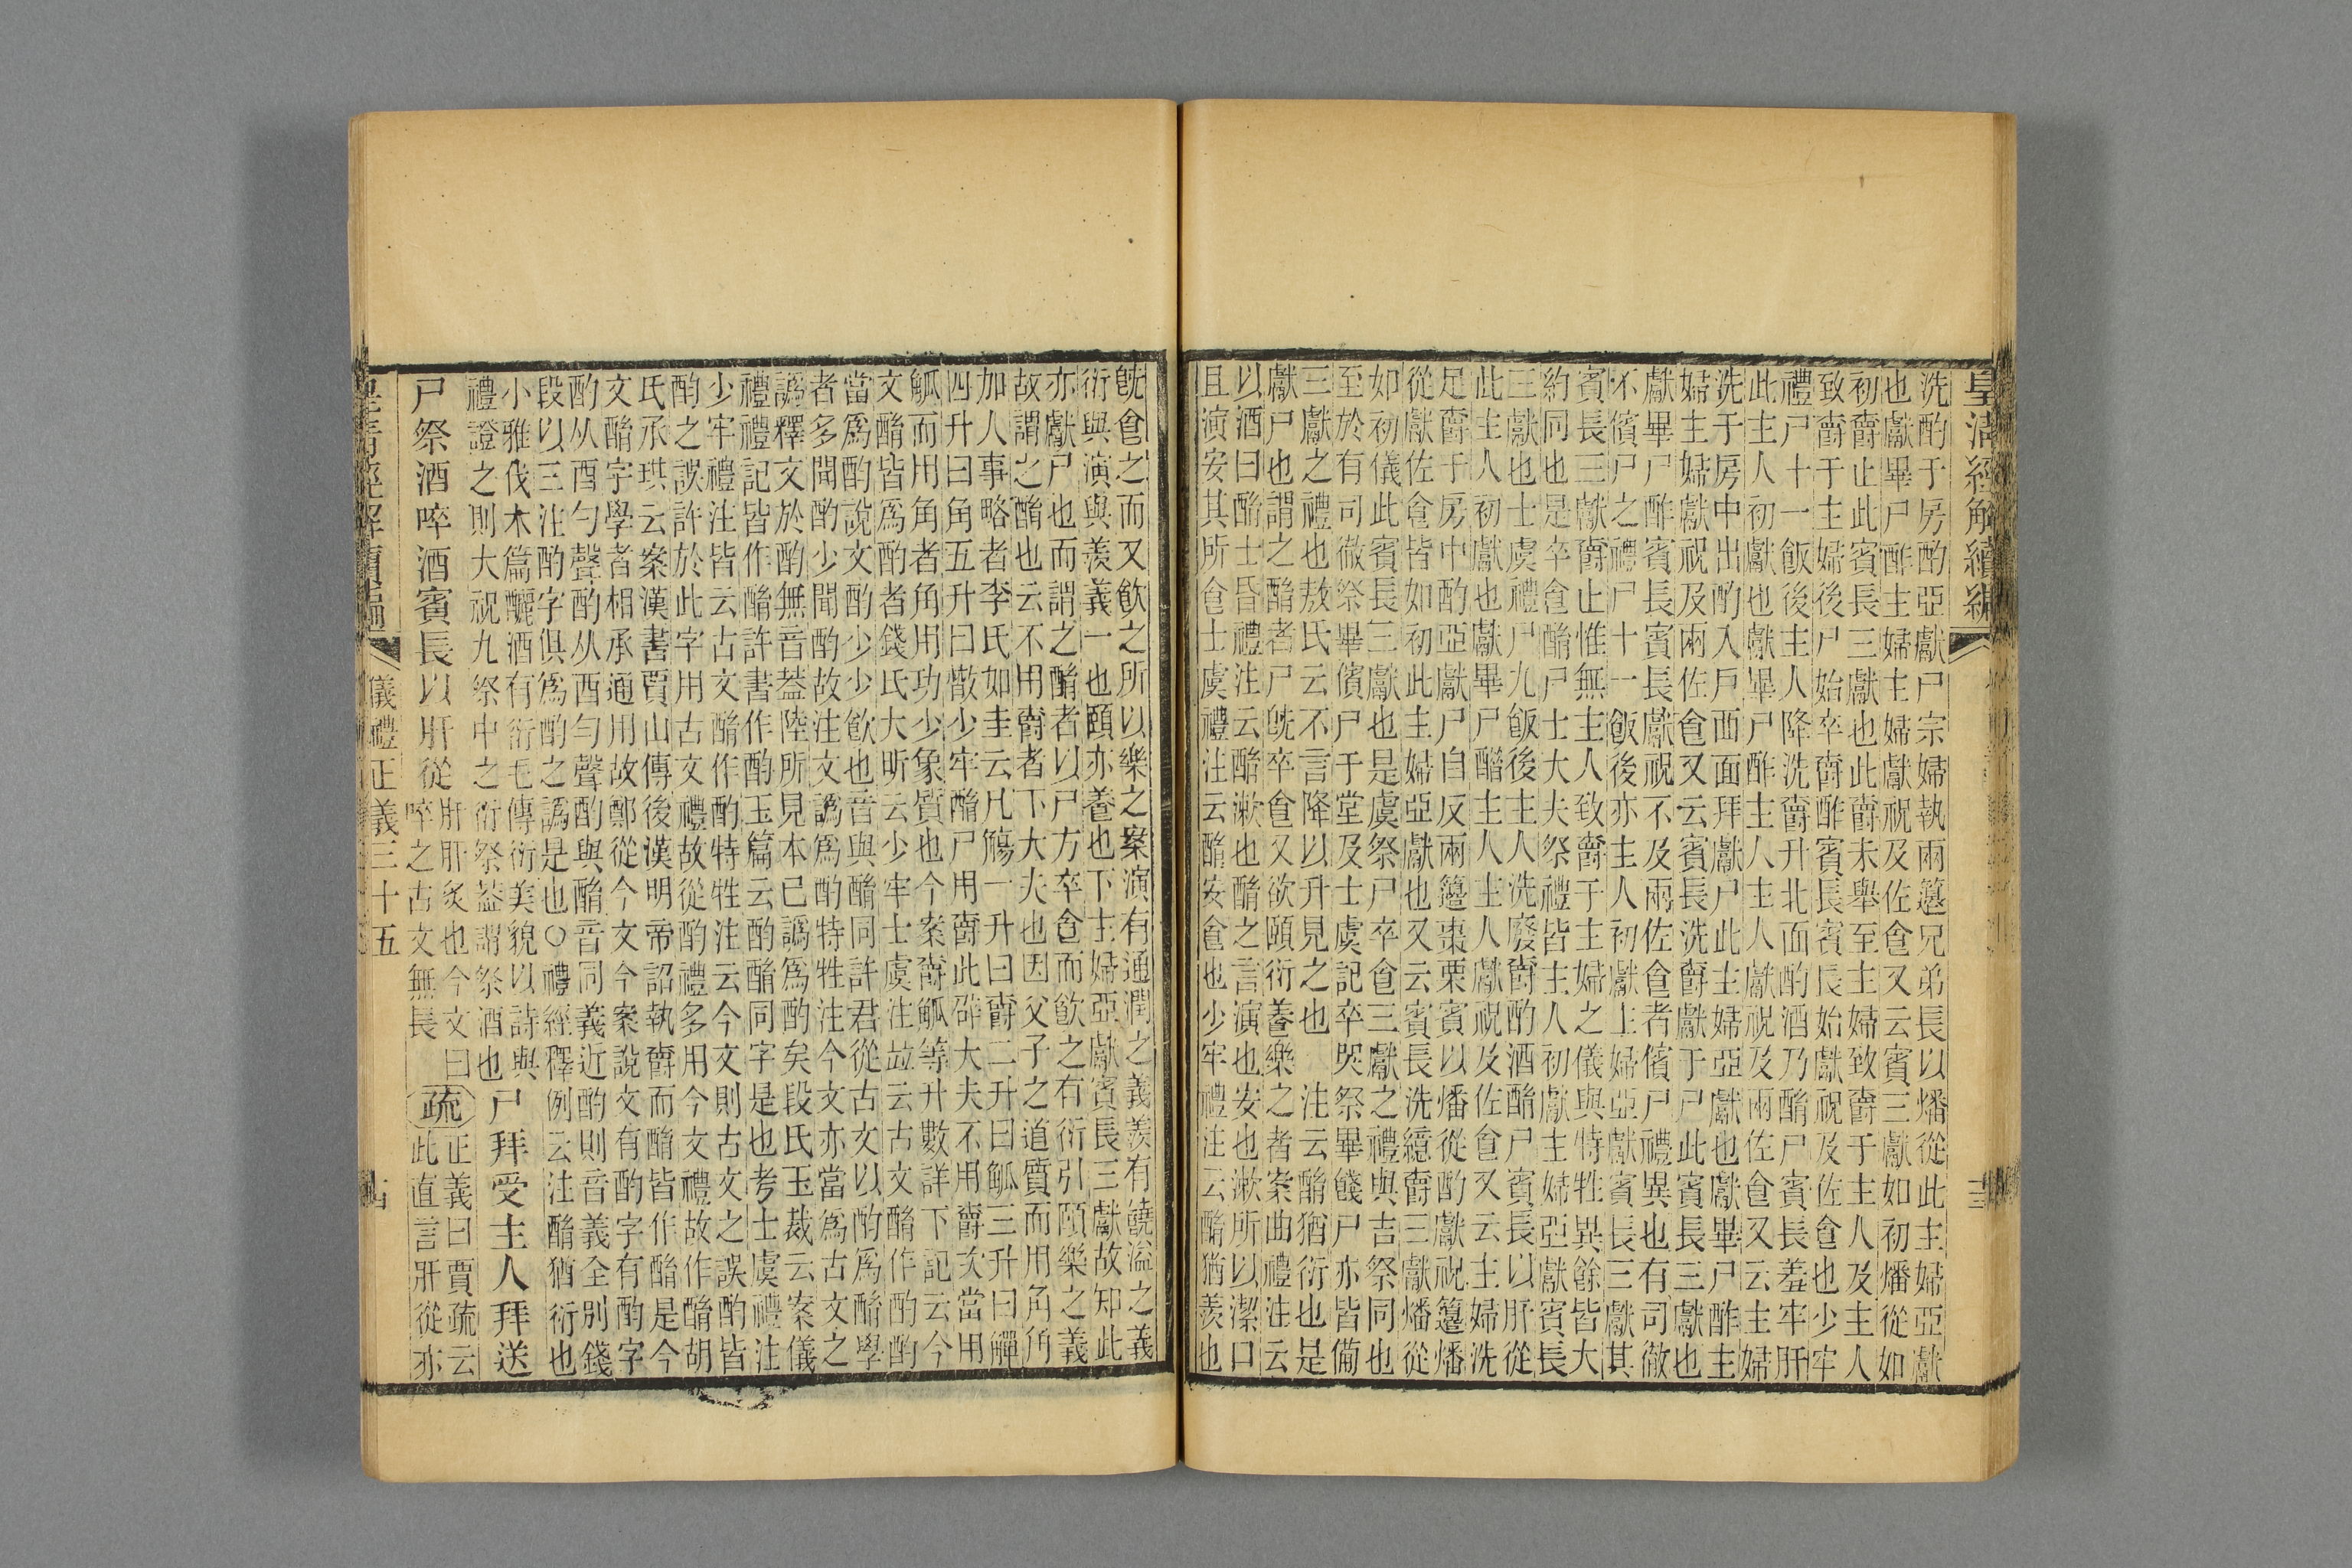 皇清經解續編
洗酌于房酌亞獻尸宗婦執兩籩兄弟長以燔從此主婦亞獻
也獻畢尸酢主婦主婦獻祝及佐食又云賓三獻如初燔從如
初爵止此賓長三獻也此爵未舉至主婦致爵于主人及主人
致爵于主婦後尸始卒爵酢賓長賓長始獻祝及佐食也少牢
禮尸十一飯後主人降洗爵升北面酌酒乃酳尸賓長羞牢肝
此主人初獻也獻畢尸酢主人主人獻祝及兩佐食又云主婦
洗于房中出酌入戶西面拜獻尸此主婦亞獻也獻畢尸酢主
婦主婦獻祝及兩佐食又云賓長洗爵獻于尸此賓長三獻也
獻畢尸酢賓長賓長獻祝不及兩佐食者儐尸禮異也有司徹
不儐尸之禮尸十一飯後亦主人初獻主婦亞獻賓長三獻其
賓長三獻爵止惟無主人致爵于主婦之儀與特牲異餘皆大
約同也是卒食酳尸士大夫祭禮皆主人初獻主婦亞獻賓長
三獻也士虞禮尸九飯後主人洗廢爵酌酒酳尸賓長以肝從
此主人初獻也獻畢尸酳主人主人獻祝及佐食又云主婦洗
足爵于房中酌亞獻尸自反兩籩棗栗賓以燔從酌獻祝籩燔
從獻佐食皆如初此主婦亞獻也又云賓長洗繶爵三獻燔從
如初儀此賓長三獻也是虞祭尸卒食三獻之禮與吉祭同也
至於有司徹祭畢儐尸于堂及士虞記卒哭祭畢餞尸亦皆備
三獻之禮也敖氏云不言降以升見之也　注云酳猶衍也是
獻尸也謂之酳者尸旣卒食又欲頤衍養樂之者案曲禮注云
以酒曰酳士昏禮注云酳漱也酳之言演也安也漱所以潔口
且演安其所食士虞禮注云酳安食也少牢禮注云酳猶羨也
旣食之而又飮之所以樂之案演有通潤之義羨有饒溢之義
衍與演與羨義一也頤亦養也下主婦亞獻賓長三獻故知此
亦獻尸也而謂之酳者以尸方卒食而飮之有衍引頤樂之義
故謂之酳也云不用爵者下大夫也因父子之道質而用角角
加人事略者李氏如圭云凡觴一升曰爵二升曰觚三升曰觶
四升曰角五升曰散少牢酳尸用爵此卻大夫不用爵次當用
觚而用角者角用功少象質也今案爵觚等升數詳下記云今
文酳皆爲酌者錢氏大昕云少牢士虞注竝云古文酳作酌酌
當爲酌說文酌少少飮也音與酳同許君從古文以酌爲酳學
者多聞酌少聞酌故注文譌爲酌特牲注今文亦當爲古文之
譌釋文於酌無音葢陸所見本已譌爲酌矣段氏玉裁云案儀
禮禮記皆作酳許書作酌玉篇云酌酳同字是也考士虞禮注
少牢禮注皆云古文酳作酌特牲注云今文則古文之誤酌皆
酌之誤許於此字用古文禮故從酌禮多用今文禮故作酳胡
氏承珙云案漢書賈山傳後漢明帝詔執爵而酳皆作酳是今
文酳字學者相承通用故鄭從今文今案說文有酌字有酌字
酌从酉勻聲酌从酉勺聲酌與酳音同義近酌則音義全別錢
段以三注酌字俱爲酌之譌是也○禮經釋例云注酳猶衍也
小雅伐木篇釃酒有衍毛傳衍美貌以詩與
禮證之則大祝九祭中之衍祭葢謂祭酒也
尸拜受主人拜送
尸祭酒啐酒賓長以肝從
肝肝炙也今文曰
啐之古文無長
疏
正義曰賈疏云
此直言肝從亦
皇清經解續編
儀禮正義三十五